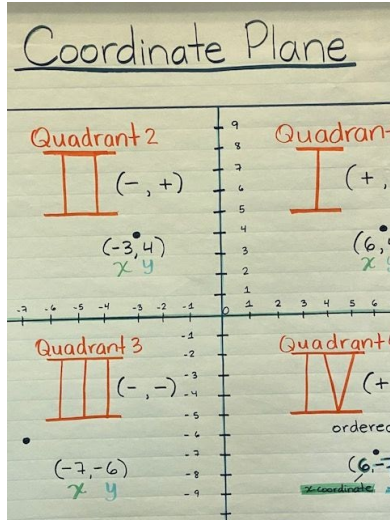 Coordinate Plane
Quadrant 2
II
(-, +)
(-3, 4)
x y
Quadran
I
(+,
(6,
x
9
8
7
6
5
4
3
2
1
-7 -6 -5 -4 -3 -2 -1 0 1 2 3 4 5 6
-1
-2
-3
-4
-5
-6
-7
-8
-9
Quadrant 3
III
(-, -)
(-7, -6)
x y
Quadrant
IV
(+
ordered
(6, -7
x-coordinate